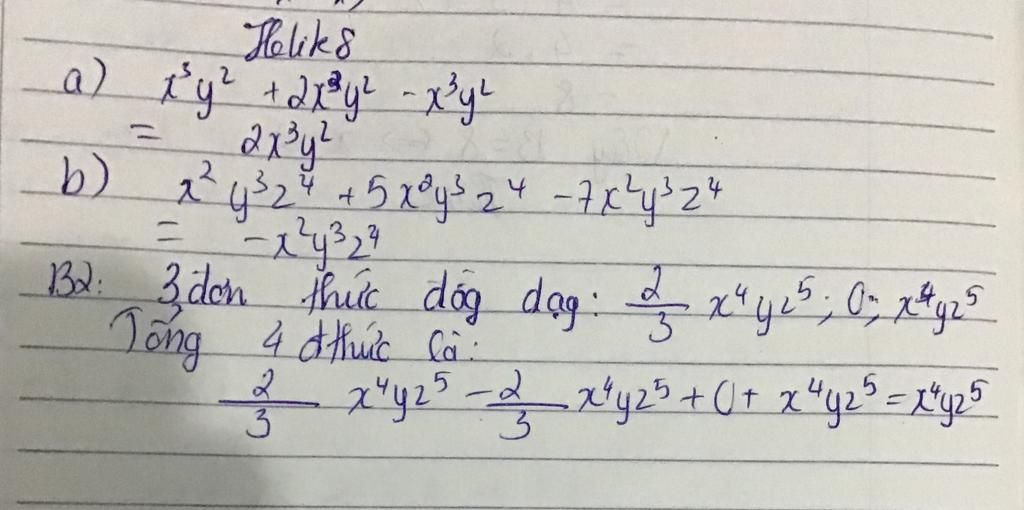 Helik8
a) x³y² + 2x³y² - x³y²
= 2x³y²
b) x²y³z⁴ + 5x²y³z⁴ - 7x²y³z⁴
= -x²y³z⁴
B2: 3 đơn thức dóg dạg: 2/3 x⁴yz⁵; 0; x⁴yz⁵
Tổng 4 đthức là:
2/3 x⁴yz⁵ - 2/3 x⁴yz⁵ + 0 + x⁴yz⁵ = x⁴yz⁵